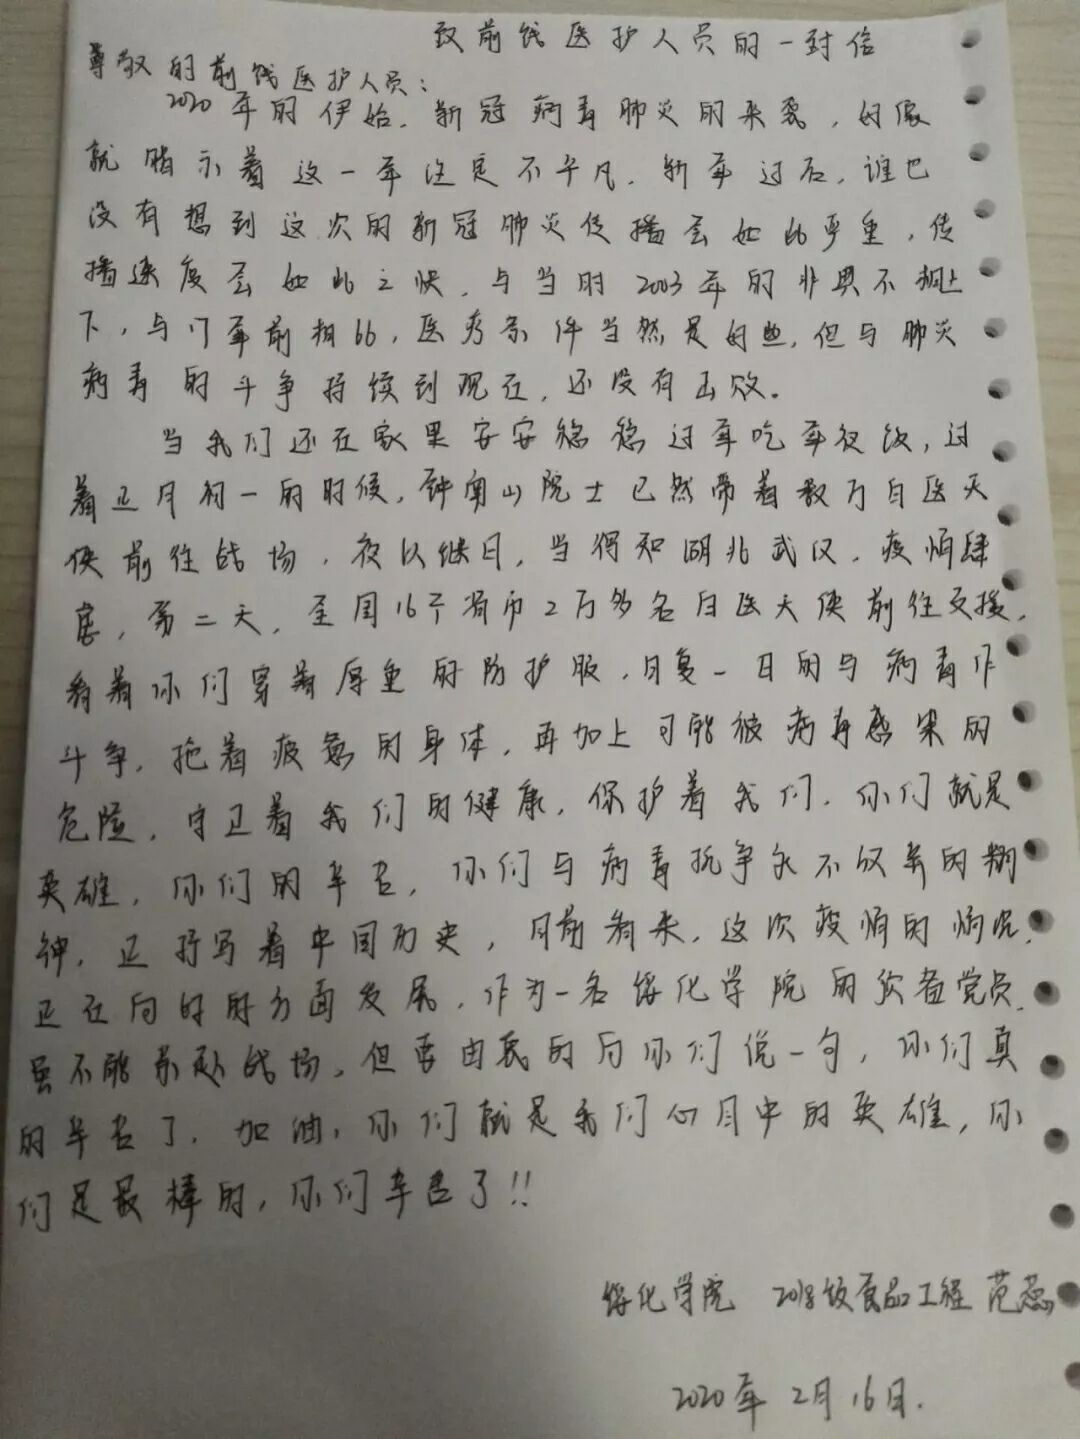 致前线医护人员的一封信
尊敬的前线医护人员：
2020年的伊始，新冠病毒肺炎的来袭，好像
就暗示着这一年注定不平凡，新年过后，谁也
没有想到这次的新冠肺炎传播会如此严重，传
播速度会如此之快，与当时2003年的非典不相上
下，与17年前相比，医疗条件当然是好些，但与肺炎
病毒的斗争持续到现在，还没有击败。
当我们还在家里安安稳稳过年吃年夜饭，过
着正月初一的时候，钟南山院士已然带着数万白医天
使前往战场，夜以继日，当得知湖北武汉，疫情肆
虐，第二天，全国16个省市2万多名白医天使前往支援，
看着你们穿着厚重的防护服，日复一日的与病毒作
斗争，拖着疲惫的身体，再加上可能被病毒感染的
危险，守卫着我们的健康，保护着我们，你们就是
英雄，你们的辛苦，你们与病毒抗争永不放弃的精
神，正抒写着中国历史，目前看来，这次疫情的情况，
正在向好的方面发展，作为一名绥化学院的预备党员，
虽不能亲赴战场，但要由衷的向你们说一句，你们真
的辛苦了，加油，你们就是我们心目中的英雄，你
们是最棒的，你们辛苦了!!
绥化学院 2018级食品工程 范蕊
2020年2月16日.